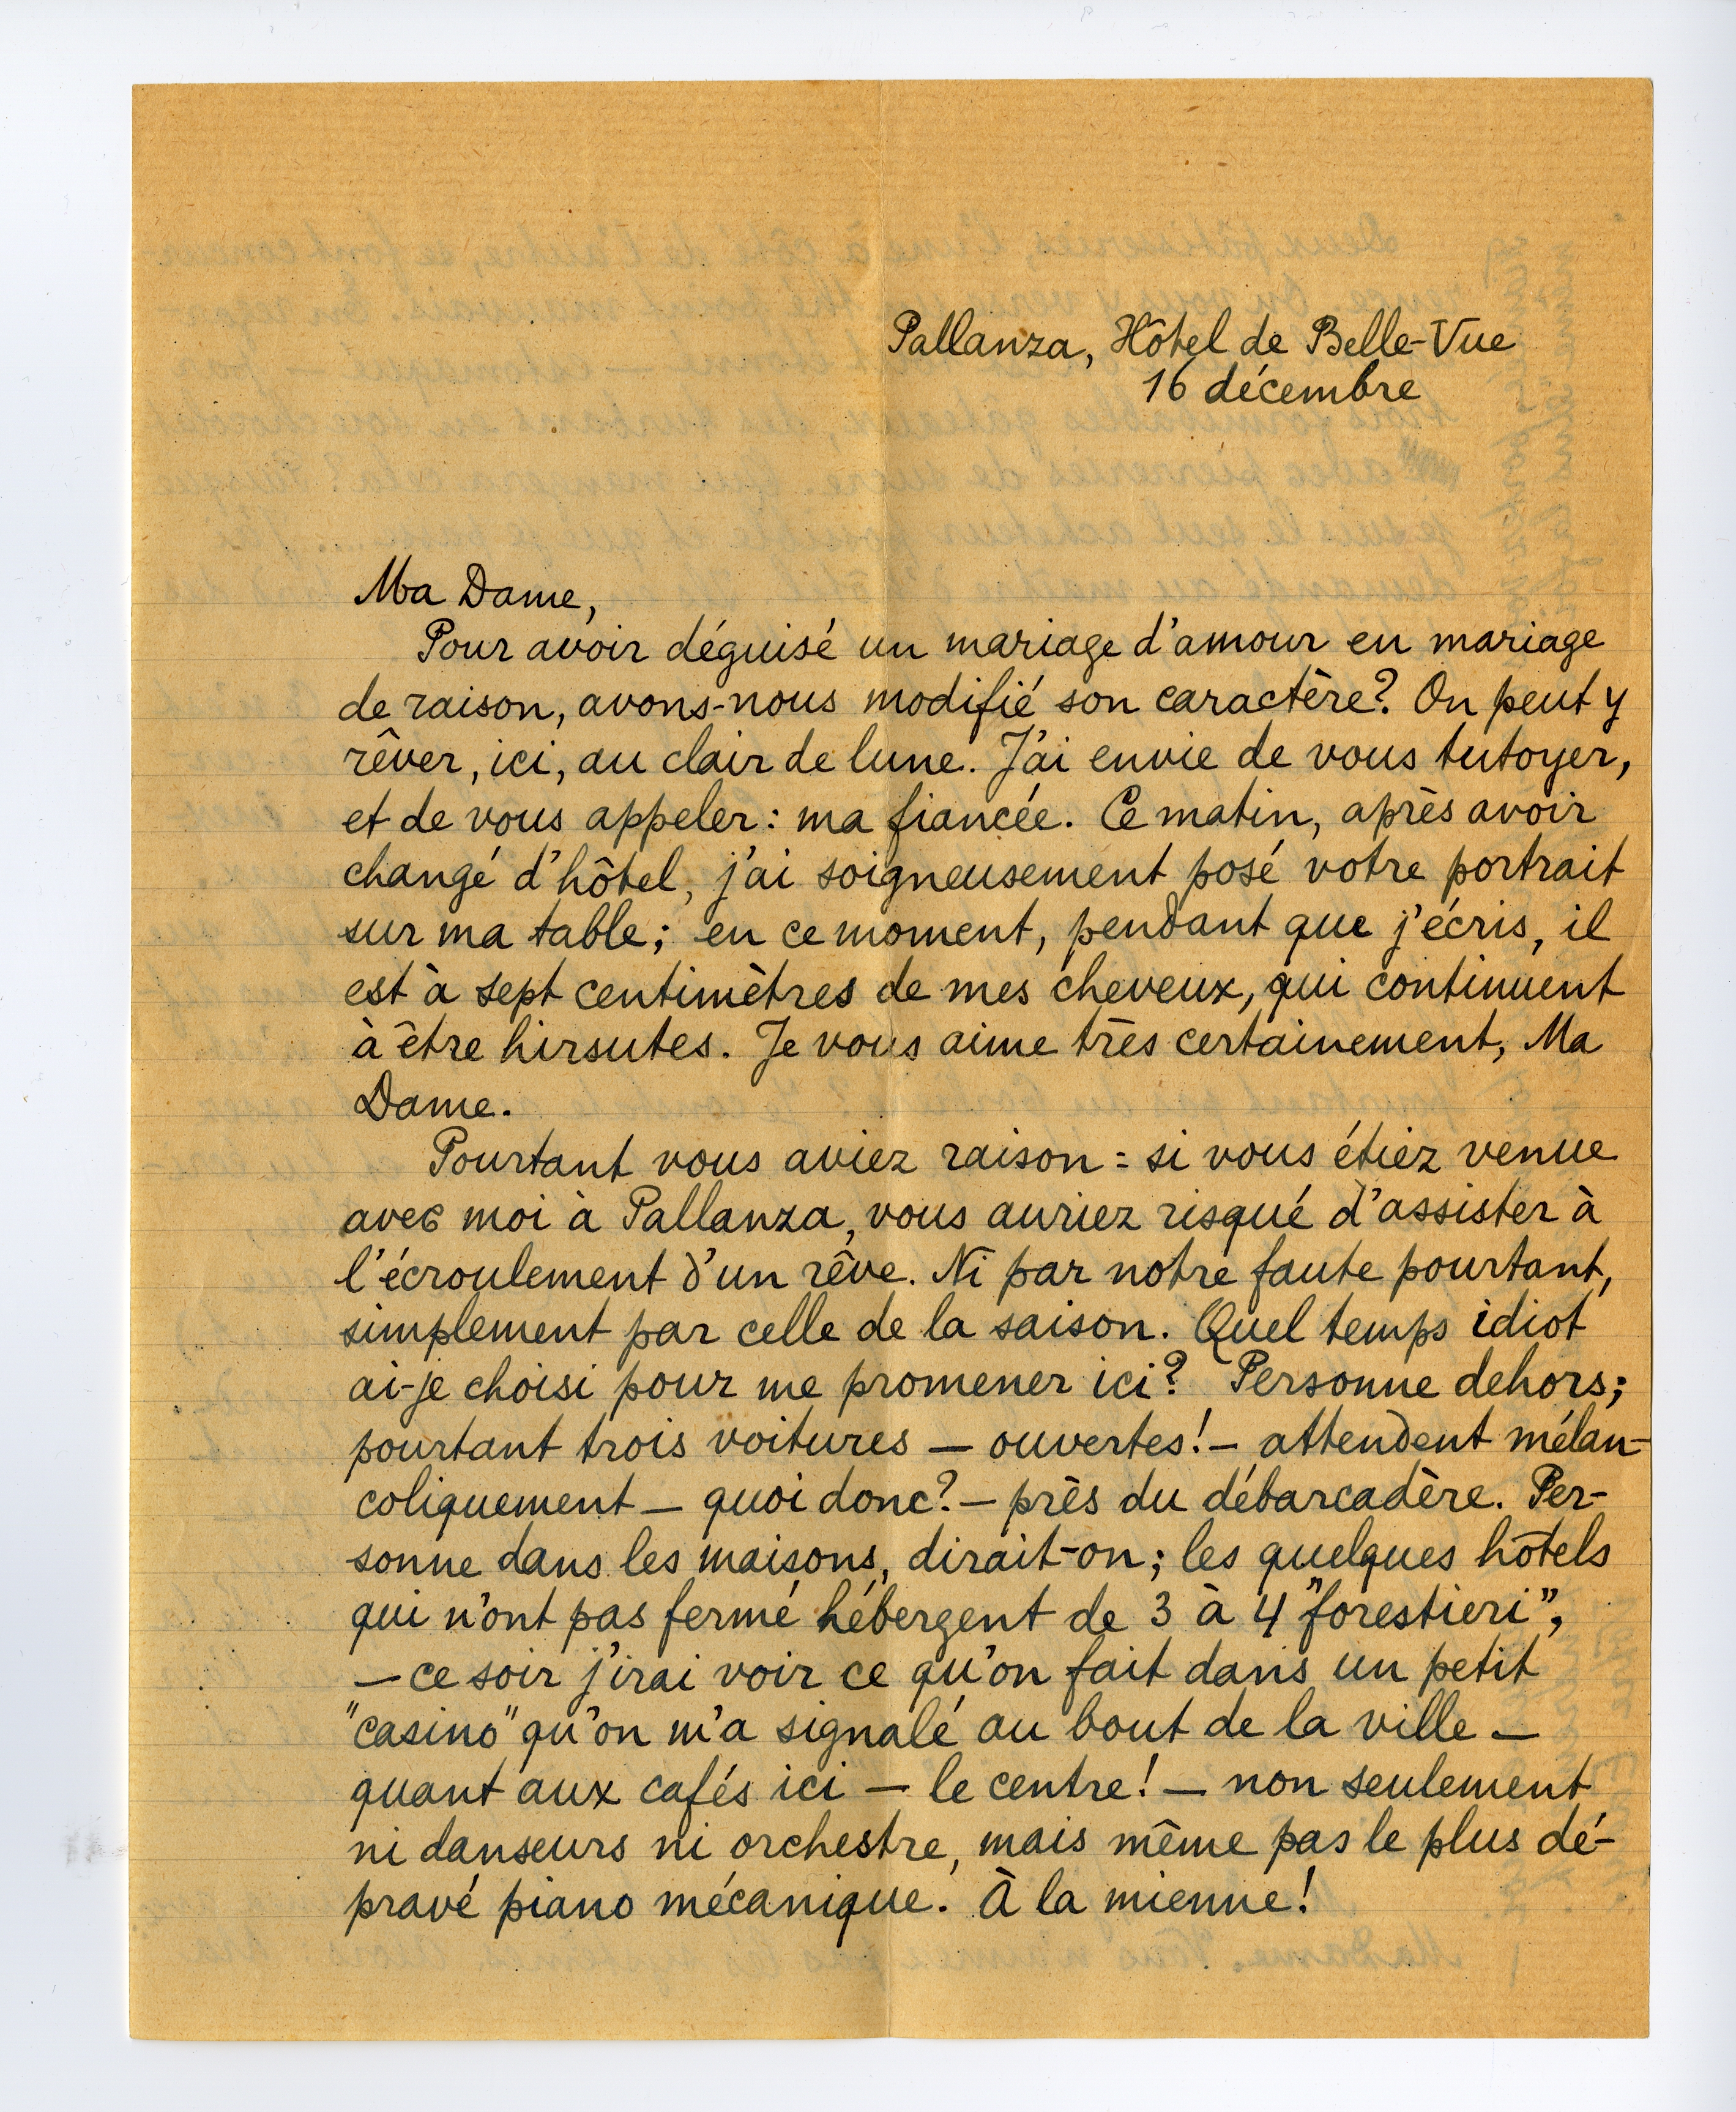 Pallanza, Hôtel de Belle-Vue
16 décembre
Ma Dame,
Pour avoir déguisé un mariage d'amour en mariage
de raison, avons-nous modifié son caractère? On peut y
rêver, ici, au clair de lune. J'ai envie de vous tutoyer,
et de vous appeler: ma fiancée. Ce matin, après avoir
changé d'hôtel, j'ai soigneusement posé votre portrait
sur ma table; en ce moment, pendant que j'écris, il
est à sept centimètres de mes cheveux, qui continuent
à être hirsutes. Je vous aime très certainement, Ma
Dame.
Pourtant vous aviez raison: si vous étiez venue
avec moi à Pallanza, vous auriez risqué d'assister à
l'écroulement d'un rêve. Ni par notre faute pourtant,
simplement par celle de la saison. Quel temps idiot
ai-je choisi pour me promener ici? Personne dehors;
pourtant trois voitures — ouvertes! — attendent mélan-
coliquement — quoi donc? — près du débarcadère. Per-
sonne dans les maisons, dirait-on; les quelques hôtels
qui n'ont pas fermé hébergent de 3 à 4 "forestieri",
— ce soir j'irai voir ce qu'on fait dans un petit
"casino" qu'on m'a signalé au bout de la ville —
quant aux cafés ici — le centre! — non seulement
ni danseurs ni orchestre, mais même pas le plus dé-
pravé piano mécanique. À la mienne!